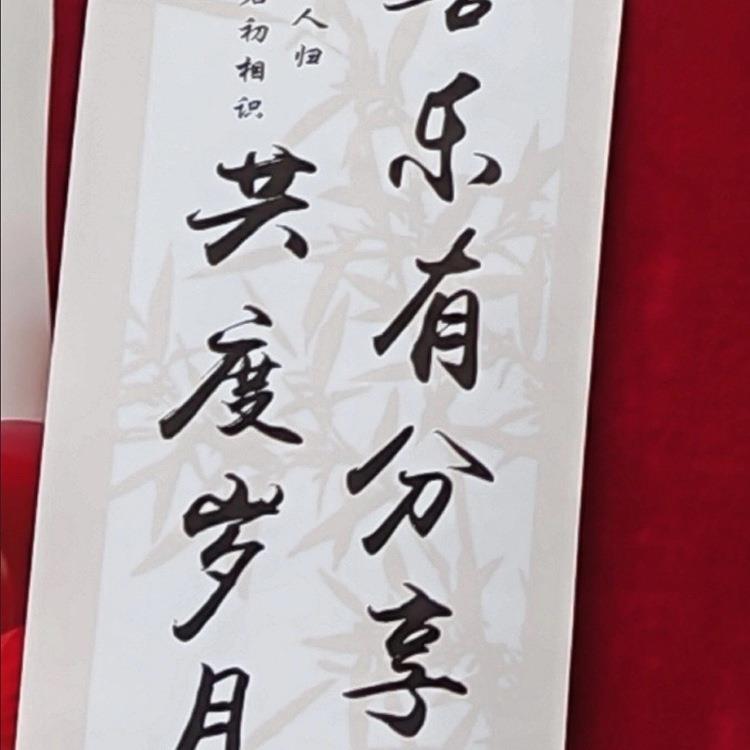 乐有分享
人归
初相识
共度岁月